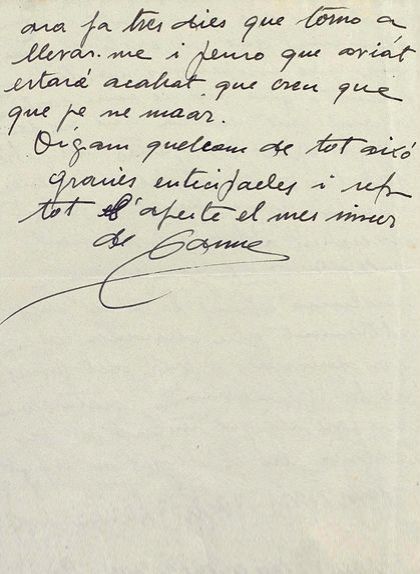 ara fa tres dies que torno a
llevar-me i penso que aviat
estará acabat que creu que
que fe ne maar.
Digam quelcom de tot aixó
gracies enticipades i rep
tot l'afecte el mes sincer
de